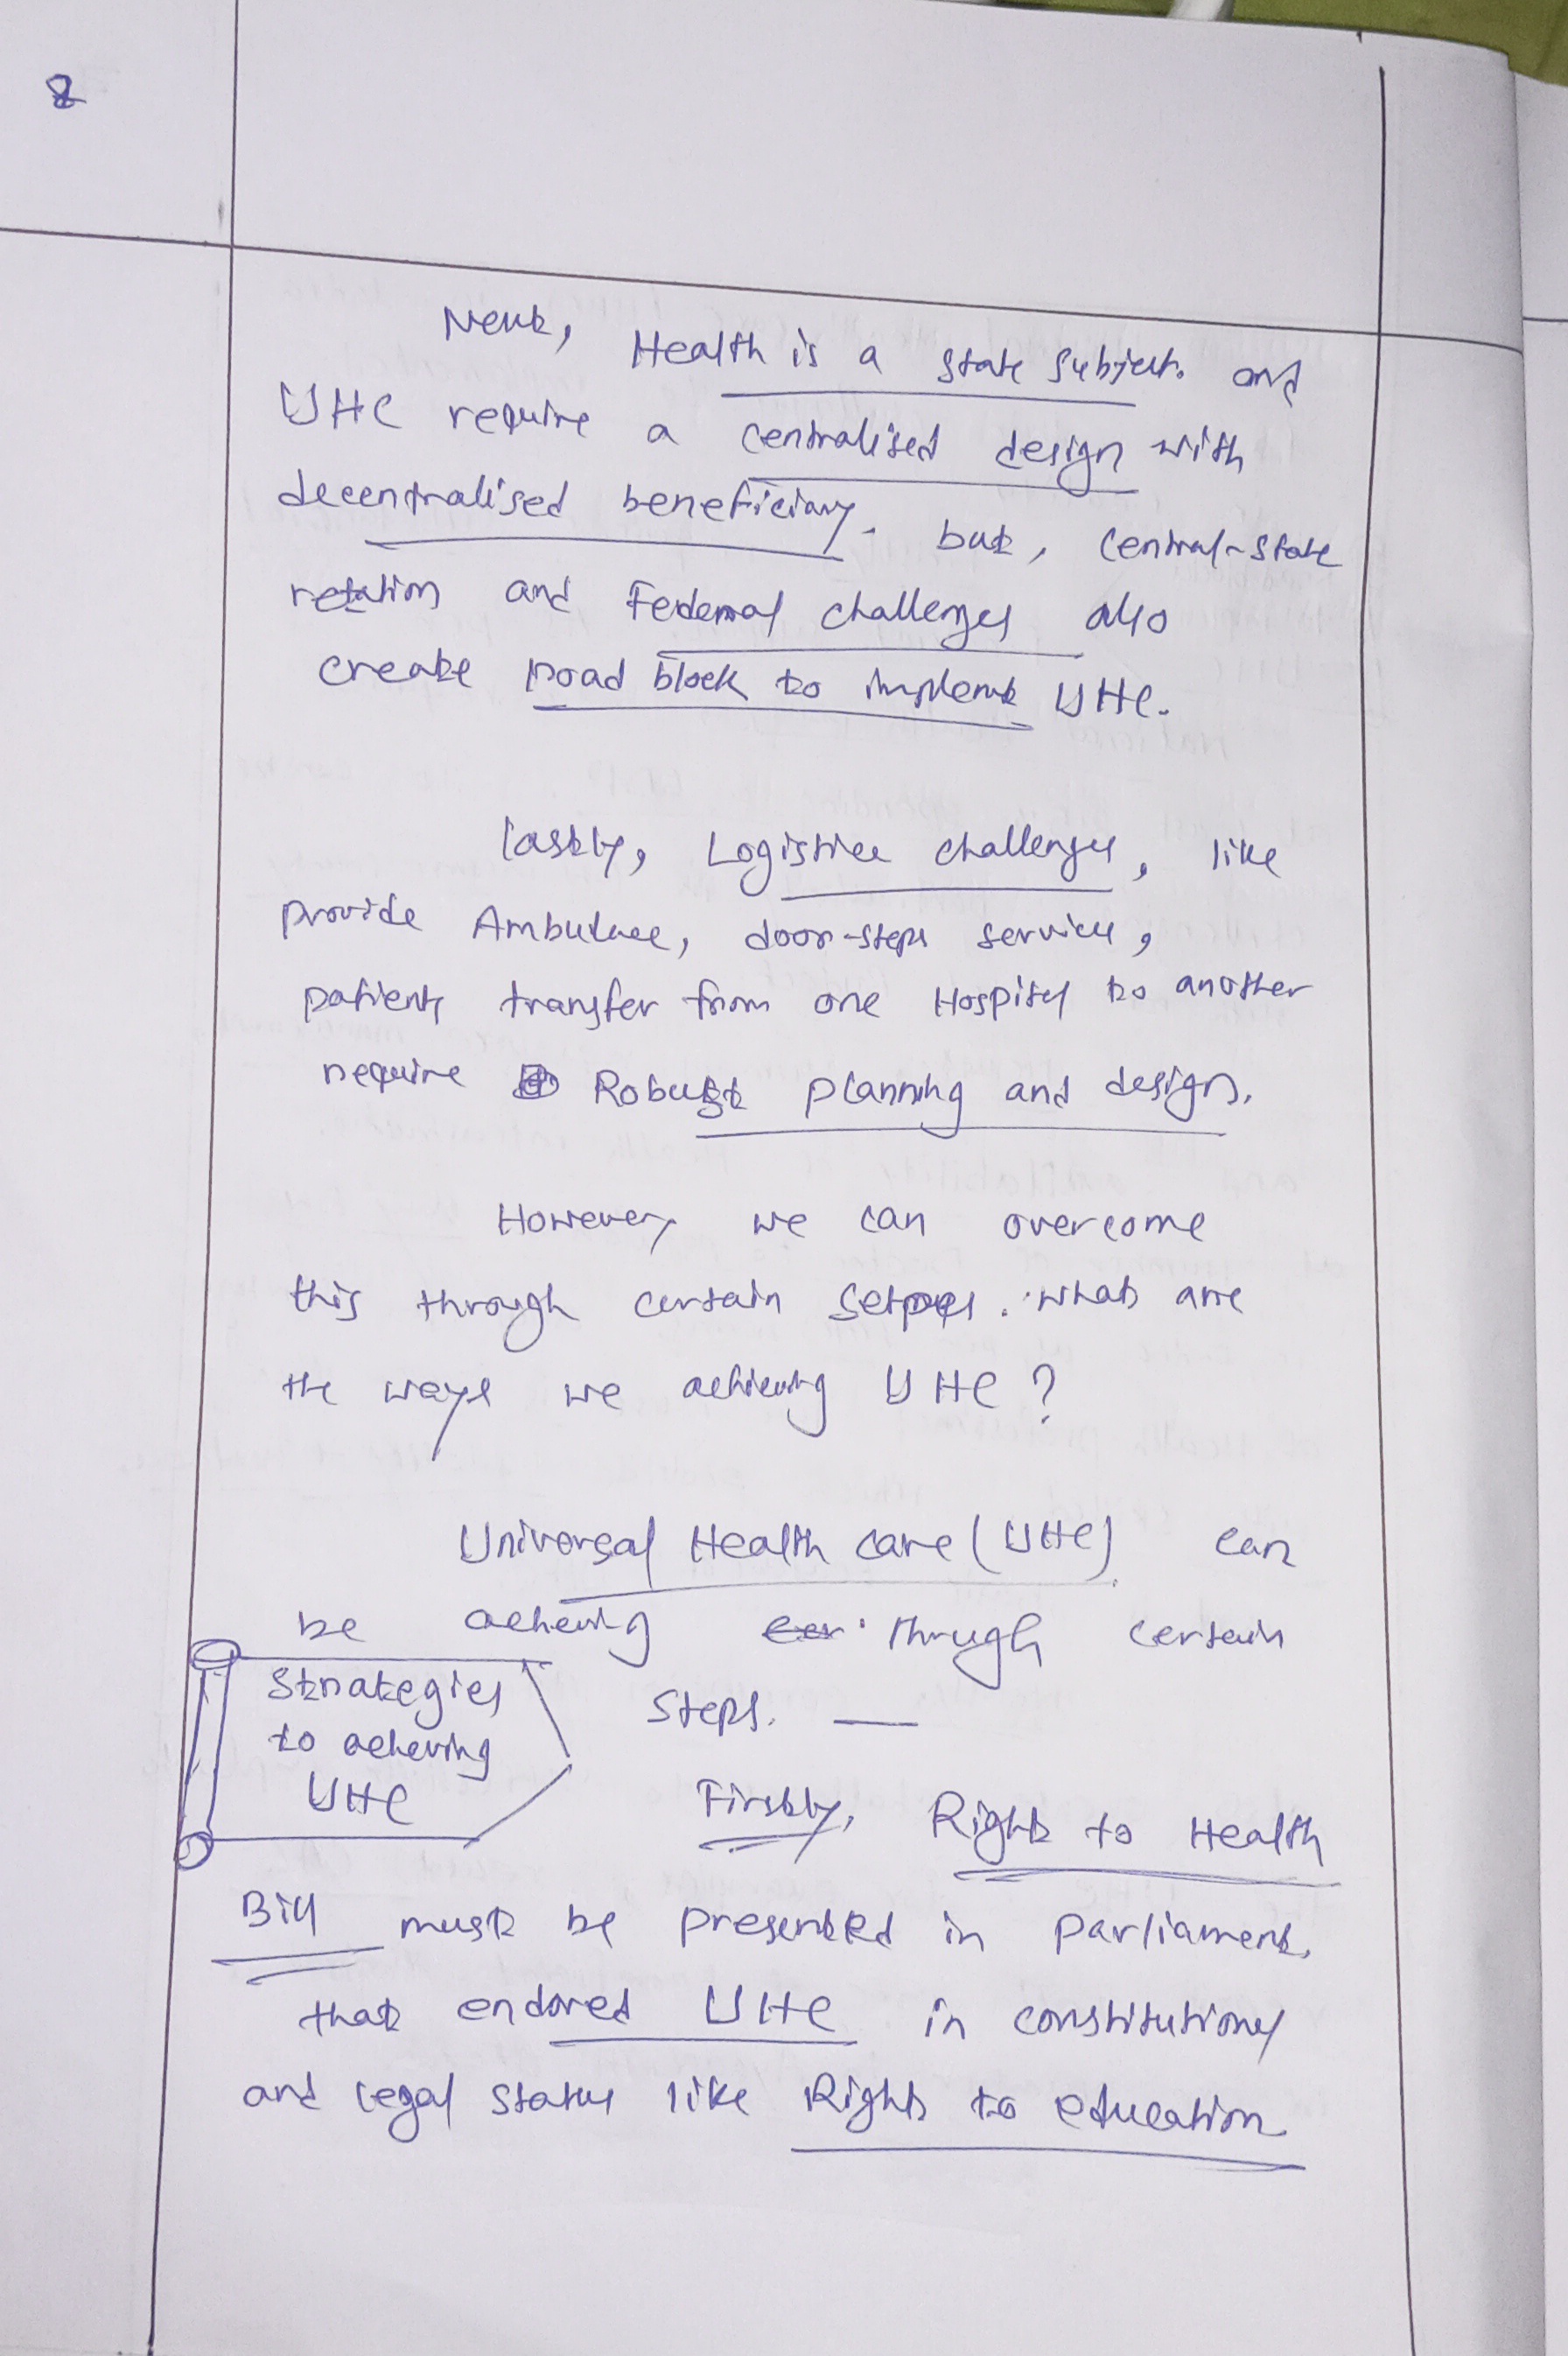 8
Next, Health is a state subject. and
UHC require a centralised design with
decentralised beneficiary. but, central-state
relation and Federal challenges also
create road block to implemt UHC.
lastly, Logistice challenges, like
provide Ambulace, door-steps services,
patients transfer from one Hospital to another
require Robust planning and design.
However, we can overcome
this through certain . what are
the ways we achieving UHC ?
Universal Health care (UHC) can
be acheving through certain
Strategies
to acheving
UHC
steps. —
Firstly, Right to Health
Bill must be presented in parliament,
that endored UHC in constitutional
and legal status like Right to education